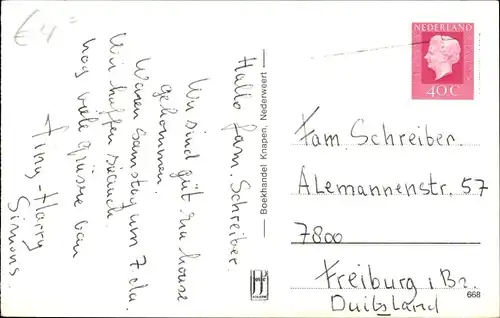 €4=
Hallo fam. Schreiber.
Wir sind gut zu house
gekommen.
Waren Samstag um 7. da.
Wir hoffen sie auch.
nog viele grüsse van
Tiny-Harry
Simons.
Boekhandel Knapen, Nederweert
NEDERLAND
40 C
Fam. Schreiber.
Alemannenstr. 57
7800
Freiburg i Br.
Duitsland
668